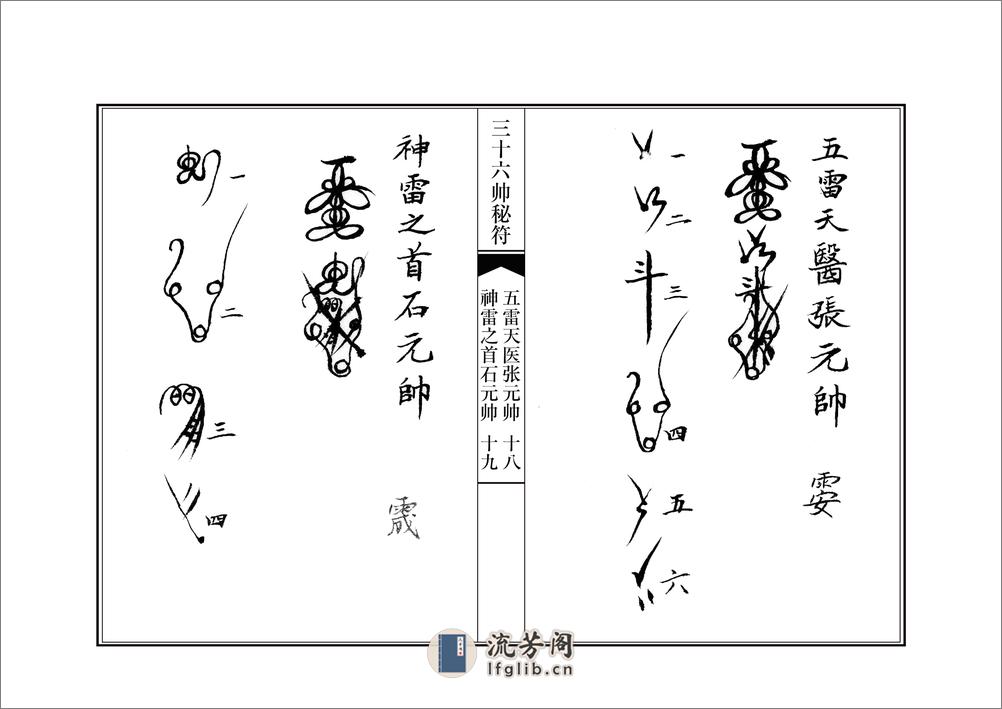 五雷天醫張元帥
一
二
斗三
四
五
六
三十六帅秘符
五雷天医张元帅 十八
神雷之首石元帅 十九
神雷之首石元帥
一
二
三
四
流芳阁
lfglib.cn